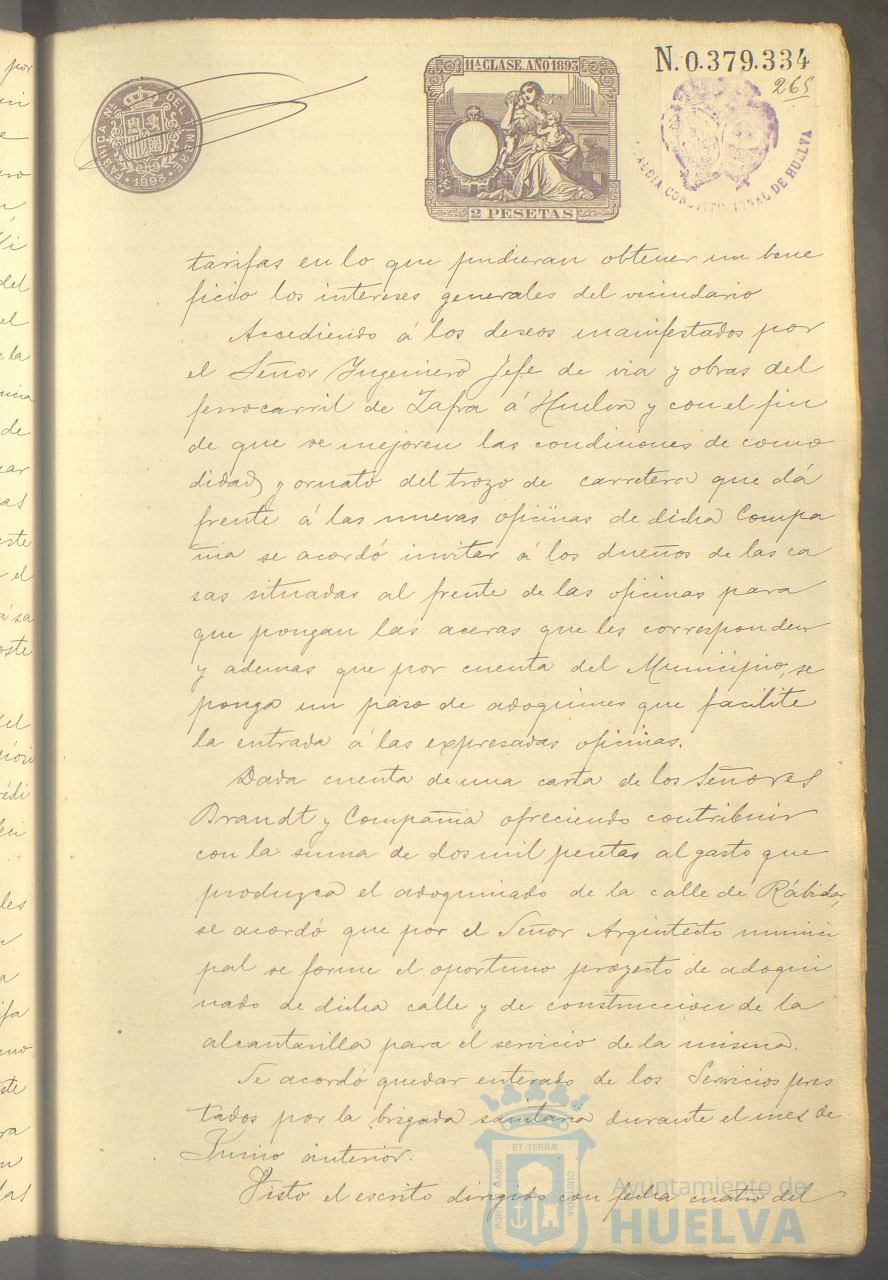 11ª CLASE. AÑO 1893
N. 0.379.334
265
FABRICA NAL. DEL TIMBRE
1893
2 PESETAS
ALCALDIA CONSTITUCIONAL DE HUELVA
tarifas en lo que pudieran obtener un bene
ficio los intereses generales del vecindario
Accediendo á los deseos manifestados por
el Señor Ingeniero Jefe de via y obras del
ferrocarril de Zafra á Huelva y con el fin
de que se mejoren las condiciones de como
didad y ornato del trozo de carretera que dá
frente á las nuevas oficinas de dicha Compa
ñia se acordó invitar á los dueños de las ca
sas situadas al frente de las oficinas para
que pongan las aceras que les corresponden
y ademas que por cuenta del Municipio, se
ponga un paso de adoquines que facilite
la entrada á las expresadas oficinas.
Dada cuenta de una carta de los Señores
Brandt y Compañia ofreciendo contribuir
con la suma de dos mil pesetas al gasto que
produzca el adoquinado de la calle de Rábida,
se acordó que por el Señor Arquitecto munici
pal se forme el oportuno proyecto de adoqui
nado de dicha calle y de construccion de la
alcantarilla para el servicio de la misma.
Se acordó quedar enterado de los Servicios pres
tados por la brigada sanitaria durante el mes de
Junio anterior.
Visto el escrito dirigido con fecha cuatro del
PORTUS MARIS ET TERRÆ CUSTODIA
Ayuntamiento de
HUELVA